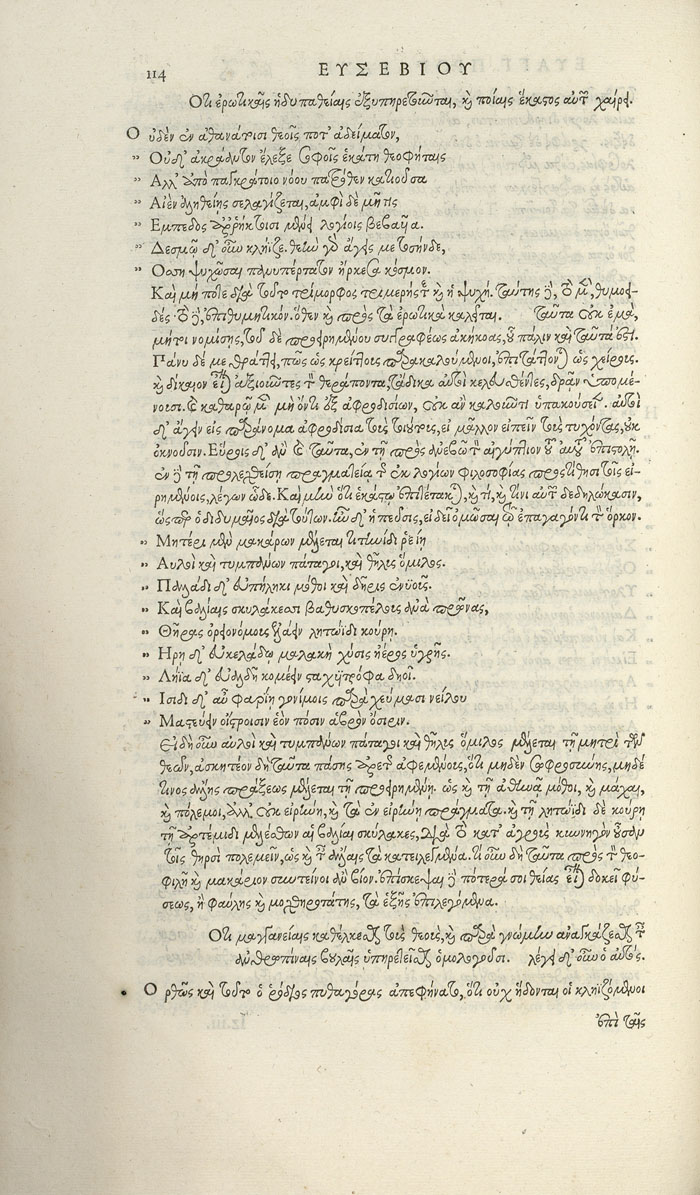 114 ΕΥΣΕΒΙΟΥ
Ὅτι ἐρωτικαῖς ἡδυπαθείαις ἐξυπηρετοῦνται, καὶ ποίαις ἕκαστος αὐτῶν χαίρει.
Οὐδὲν ἐν ἀθανάτοισι θεοῖς ποτ' ἀδείματον,
" Οὐδ' ἀκράαντον ἔλεξε σοφοῖς ἑκάτη θεοφήταις
" Ἀλλ' ἀπὸ παγκράτοιο νόου πατρόθεν κατιοῦσα
" Αἰὲν ἀληθείης σελαγίζεται, ἀμφὶ δὲ μῆτις
" Ἔμπεδος ἀρρήκτοισι μένει λογίοις βεβαυῖα.
" Δεσμῷ δ' οὖν κλήϊζε. θεὴν γὸ ἄγεις με τοσήνδε,
" Ὅση ψυχῶσαι πανυπέρτατον ἤρκεσα κόσμον.
Καὶ μή ποτε διὰ τοῦτο τρίμορφος τριμερής τε καὶ ἡ ψυχή. ταύτης δὲ, τὸ μὲν, θυμοει-
δές· τὸ δὲ, ἐπιθυμητικόν. ὅθεν καὶ πρὸς τὰ ἐρωτικὰ καλεῖται. ταῦτα οὐκ ἐμὰ,
μήτοι νομίσῃς, τοῦ δὲ προειρημένου συγγραφέως ἀκήκοας, οὗ πάλιν καὶ ταῦτά ἐστι.
Πάνυ δέ με θράττει, πῶς ὡς κρείττους παρακαλούμενοι, ἐπιτάττονται ὡς χείρους.
καὶ δίκαιον εἶναι ἀξιοῦντες τὸν θεράποντα, τὰ ἄδικα αὐτοὶ κελευσθέντες, δρᾶν ὑπομέ-
νουσι. καὶ καθαρῷ μὲν μὴ ὄντι ἐξ ἀφροδισίων, οὐκ ἂν καλοῦντι ὑπακούσειεν. αὐτοὶ
δ' ἄγειν εἰς παράνομα ἀφροδίσια τοὺς τυχόντας, εἰ μᾶλλον εἰπεῖν τοὺς τυχόντας, οὐκ
ὀκνοῦσιν. Εὕροις δ' ἂν καὶ ταῦτα, ἐν τῇ πρὸς ἀνεβὼ τὸν αἰγύπτιον τοῦ αὐτοῦ ἐπιστολῇ.
ἐν δὲ τῇ προλεχθείσῃ πραγματείᾳ τῆς ἐκ λογίων φιλοσοφίας πρόστίθησι τοῖς εἰ-
ρημένοις, λέγων ὧδε. Καὶ μὴν ὅτι ἑκάστῳ ἐπιτέτακται, καὶ τί, καὶ τίνι αὐτῶν δεδηλώκασιν,
ὥσπερ ὁ διδυμαῖος διὰ τούτων. ἦν δ' ἡ πεῦσις, εἰ δεῖ ὀμῶσαι τῷ ἐπαγαγόντι τὸν ὅρκον.
" Μητέρι μὲν μακάρων μέλεται τιτηνίδι ῥείῃ
" Αὐλοὶ καὶ τυμπάνων πάταγοι, καὶ θῆλυς ὅμιλος.
" Παλλάδι δ' εὐπήληκι μόθοι καὶ δῆρις ἐνυοῦς.
" Καὶ βαλίαις σκυλάκεσσι βαθυσκοπέλους ἀνὰ πρῶνας,
" Θῆρας ὀρεονόμους ἐλάειν λητωΐδι κούρῃ.
" Ἥρῃ δ' εὐκελάδῳ μαλακὴ χύσις ἠέρος ὑγρῆς.
" Λήϊα δ' εὐαλδῆ κομέειν σταχυητρόφα δηοῖ.
" Ἴσιδι δ' αὖ φαρίῃ γονίμοις παρὰ χεύμασι νείλου
" Μαστεύειν οἴστροισιν ἑὸν πόσιν ἁβρὸν ὄσιριν.
Εἰ δὴ οὖν αὐλοὶ καὶ τυμπάνων πάταγοι καὶ θῆλυς ὅμιλος μέλεται τῇ μητρὶ τῶν
θεῶν, ἀσκητέον δὴ ταῦτα πάσης ἀρετῆς ἀφεμένους, ὅτι μηδὲν σωφροσύνης, μηδέ
τινος ἄλλης πράξεως μέλεται τῇ προειρημένῃ. ὡς καὶ τῇ ἀθηνᾷ μόθοι, καὶ μάχαι,
καὶ πόλεμοι, ἀλλ' οὐκ εἰρήνη, καὶ τὰ ἐν εἰρήνῃ πράγματα. καὶ τῇ λητωΐδι δὲ κούρῃ
τῇ ἀρτέμιδι μελέσθων αἱ βαλίαι σκύλακες, διὰ τὸ κατ' ἀγροὺς κυνηγὸν οὖσαν
τοῖς θηρσὶ πολεμεῖν, ὡς καὶ ταῖς ἄλλαις τὰ κατειλεγμένα. τί οὖν δὴ ταῦτα πρὸς τὸν θεο-
φιλῆ καὶ μακάριον συντείνοι ἂν βίον. ἐπίσκεψαι δὲ πότερά σοι θείας εἶναι δοκεῖ φύ-
σεως, ἢ φαύλης καὶ μοχθηροτάτης, τὰ ἑξῆς ἐπιλεγόμενα.
Ὅτι μαγγανείαις καθέλκεσθαι τοὺς θεοὺς, καὶ παρὰ γνώμην ἀναγκάζεσθαι ταῖς
ἀνθρωπίναις βουλαῖς ὑπηρετεῖσθαι ὁμολογοῦσι. λέγει δ' οὖν ὁ αὐτός.
Ὀρθῶς καὶ τοῦτο ὁ ῥόδιος πυθαγόρας ἀπεφήνατο, ὅτι οὐχ ἥδονται οἱ κληϊζόμενοι
ἐπὶ ταῖς